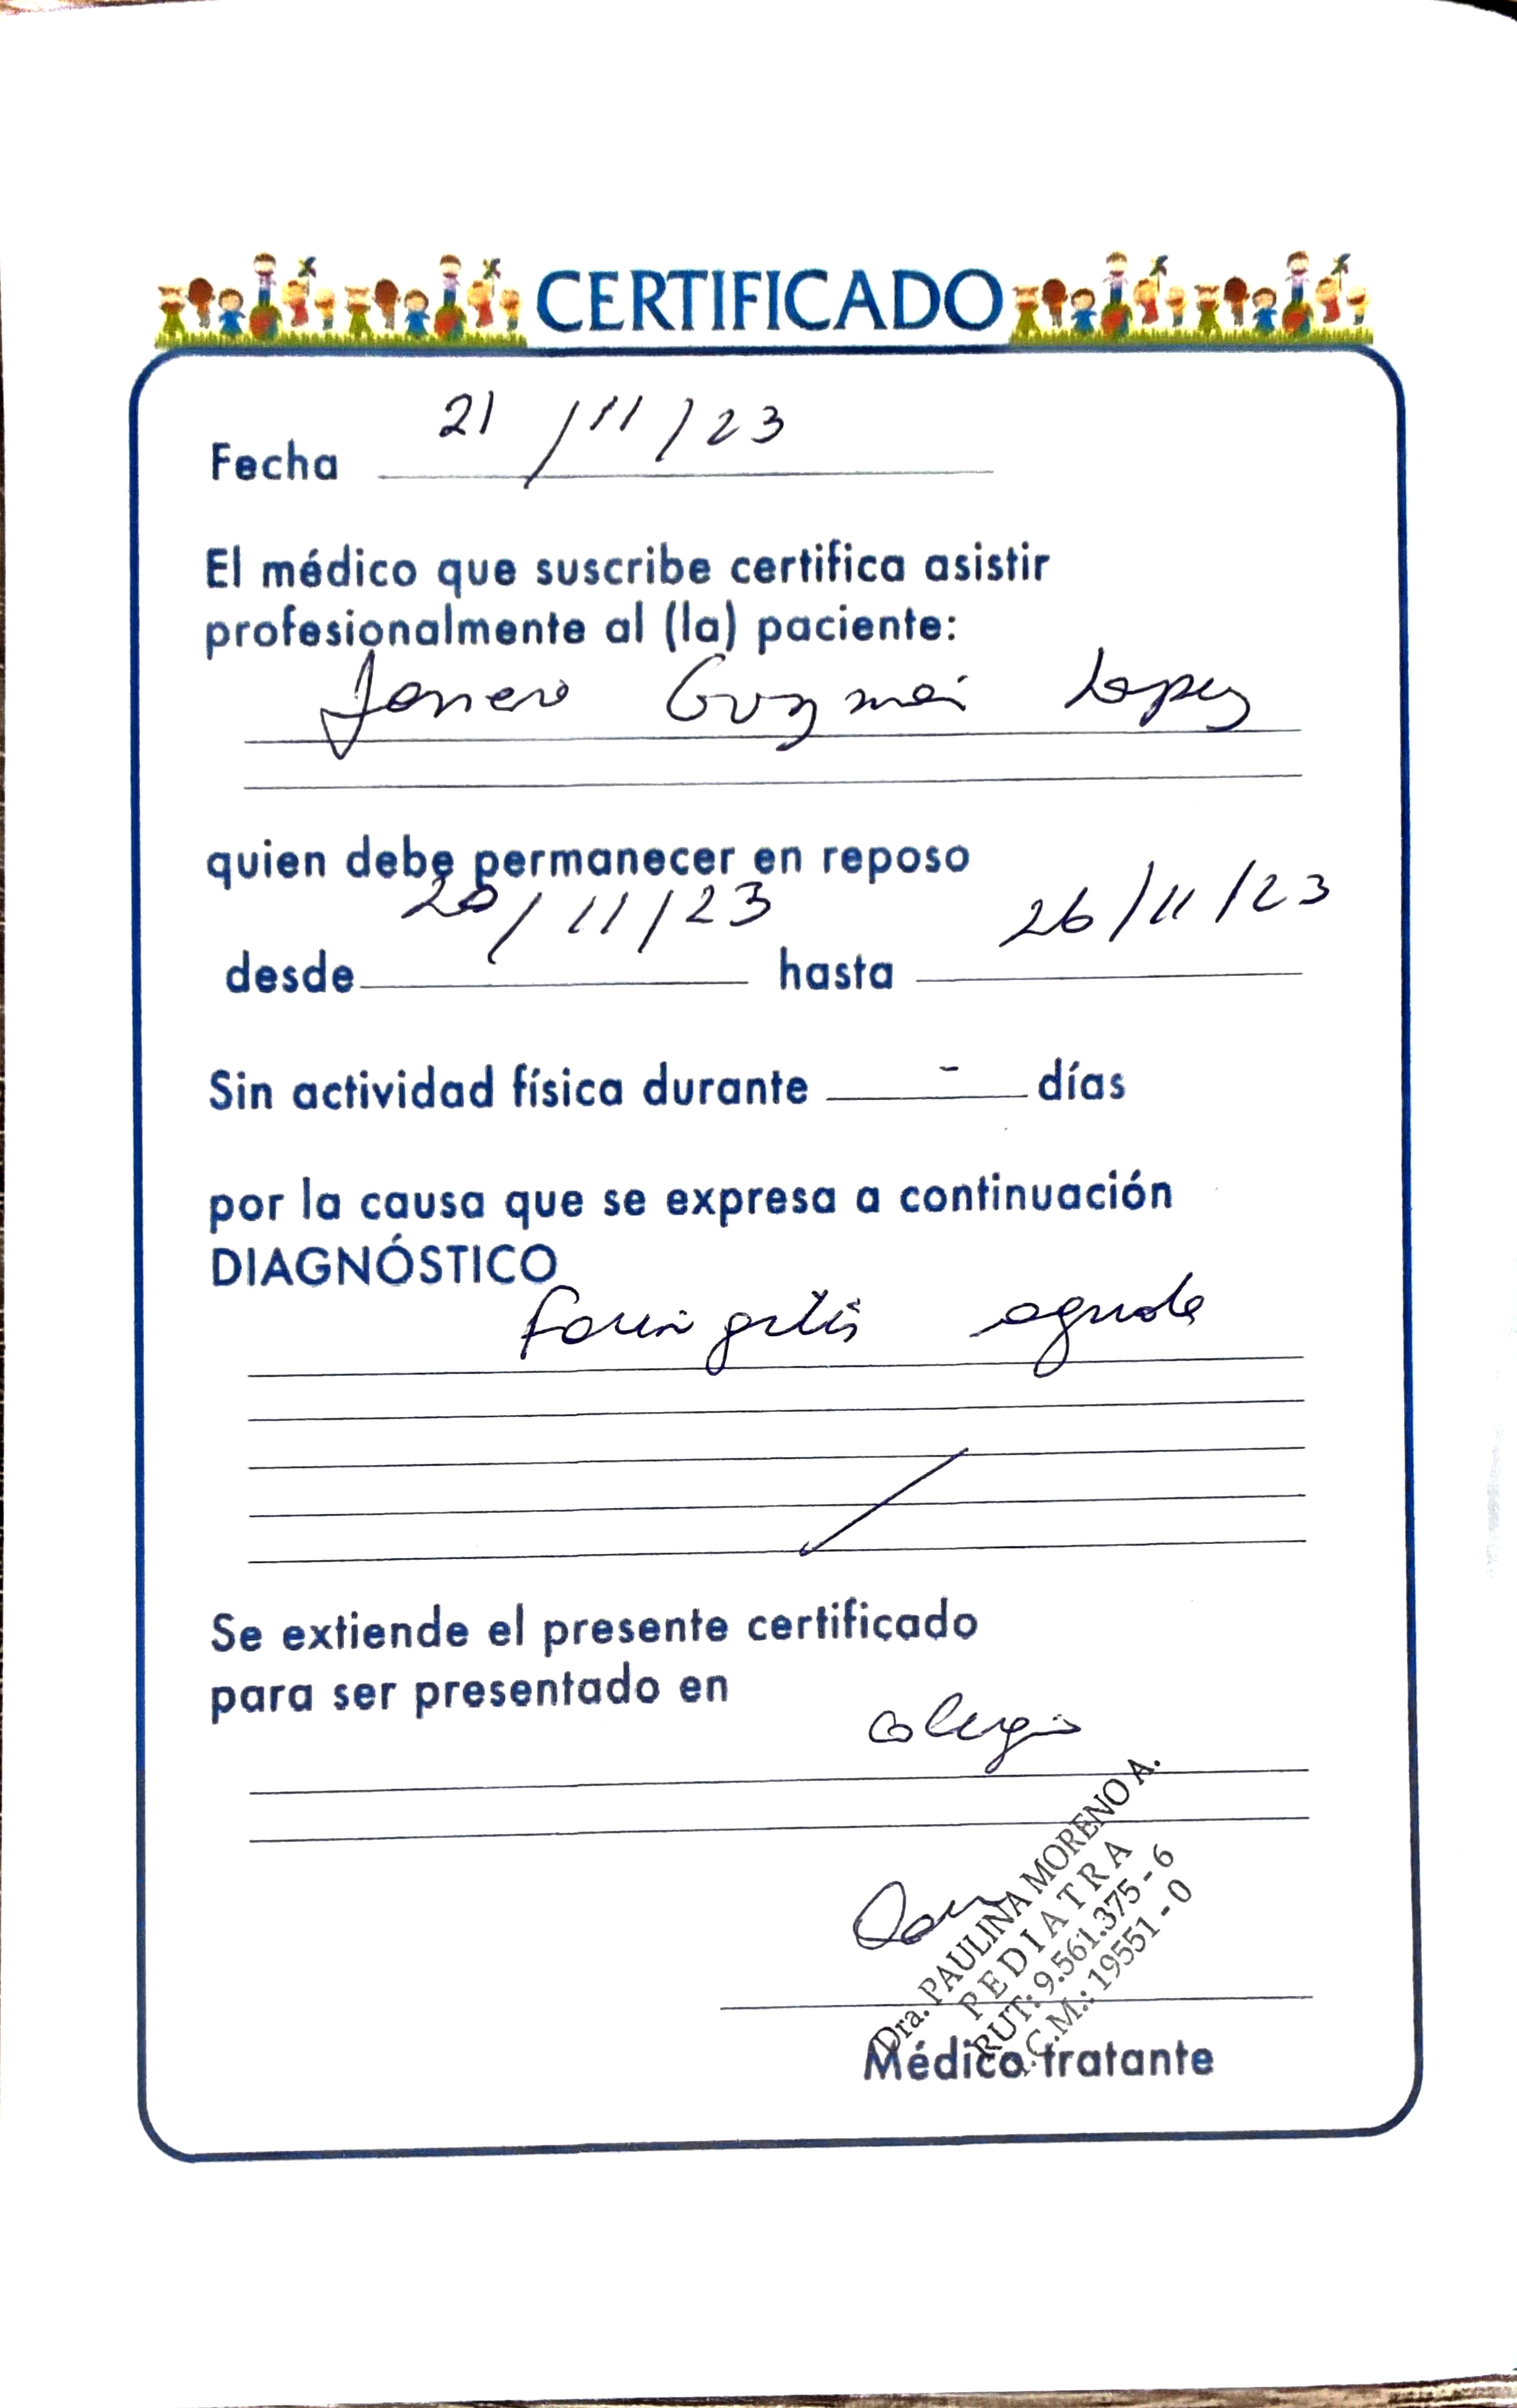 CERTIFICADO
Fecha 21/11/23
El médico que suscribe certifica asistir
profesionalmente al (la) paciente:
Guzmán Lopez
quien debe permanecer en reposo
desde 20/11/23 hasta 26/11/23
Sin actividad física durante - días
por la causa que se expresa a continuación
DIAGNÓSTICO
Faringitis aguda
Se extiende el presente certificado
para ser presentado en
colegio
Dra. PAULINA MORENO A.
PEDIATRA
RUT: 9.561.375-6
I.C.M.: 19551-0
Médico tratante